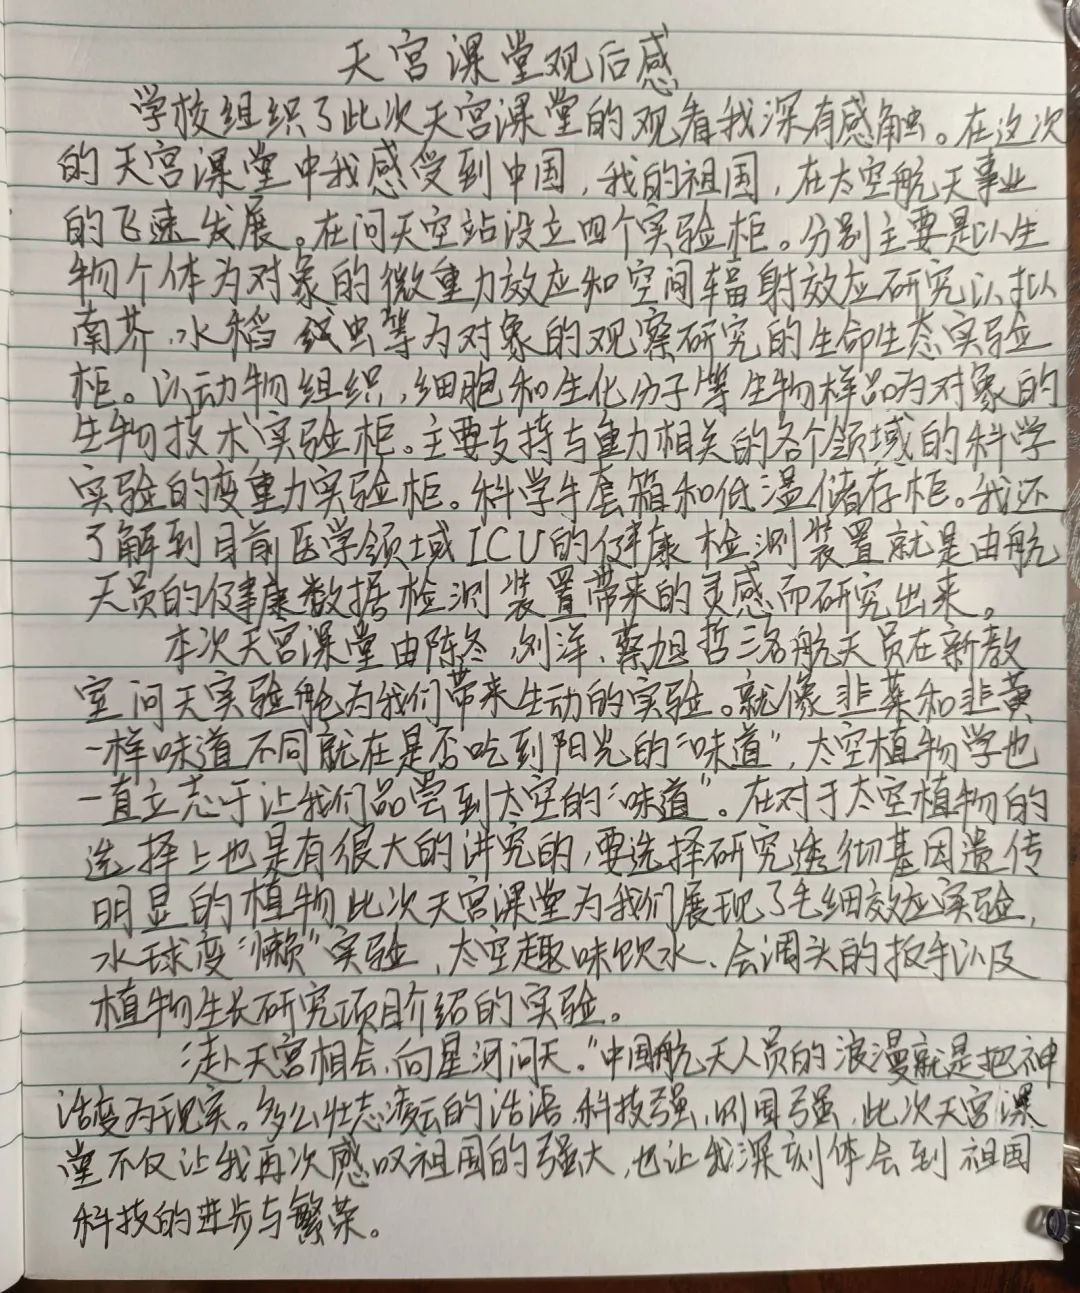 天宫课堂观后感
学校组织了此次天宫课堂的观看我深有感触。在这次
的天宫课堂中我感受到中国,我的祖国,在太空航天事业
的飞速发展。在问天空站设立四个实验柜。分别主要是以生
物个体为对象的微重力效应和空间辐射效应研究以拟
南芥、水稻 线虫等为对象的观察研究的生命生态实验
柜。以动物组织,细胞和生化分子等生物样品为对象的
生物技术实验柜。主要支持与重力相关的各个领域的科学
实验的变重力实验柜。科学手套箱和低温储存柜。我还
了解到目前医学领域ICU的健康检测装置就是由航
天员的健康数据检测装置带来的灵感而研究出来。
本次天宫课堂由陈冬、刘洋、蔡旭哲三名航天员在新教
室问天实验舱为我们带来生动的实验。就像韭菜和韭黄
一样味道不同就在是否吃到阳光的“味道”,太空植物学也
一直立志于让我们品尝到太空的“味道”。在对于太空植物的
选择上也是有很大的讲究的,要选择研究透彻基因遗传
明显的植物此次天宫课堂为我们展现了毛细效应实验,
水球变“懒”实验,太空趣味饮水、会调头的扳手以及
植物生长研究项目介绍的实验。
“赴天宫相会,向星河问天。”中国航天人员的浪漫就是把神
话变为现实。多么壮志凌云的话语.科技强,则国强,此次天宫课
堂不仅让我再次感叹祖国的强大,也让我深刻体会到祖国
科技的进步与繁荣。